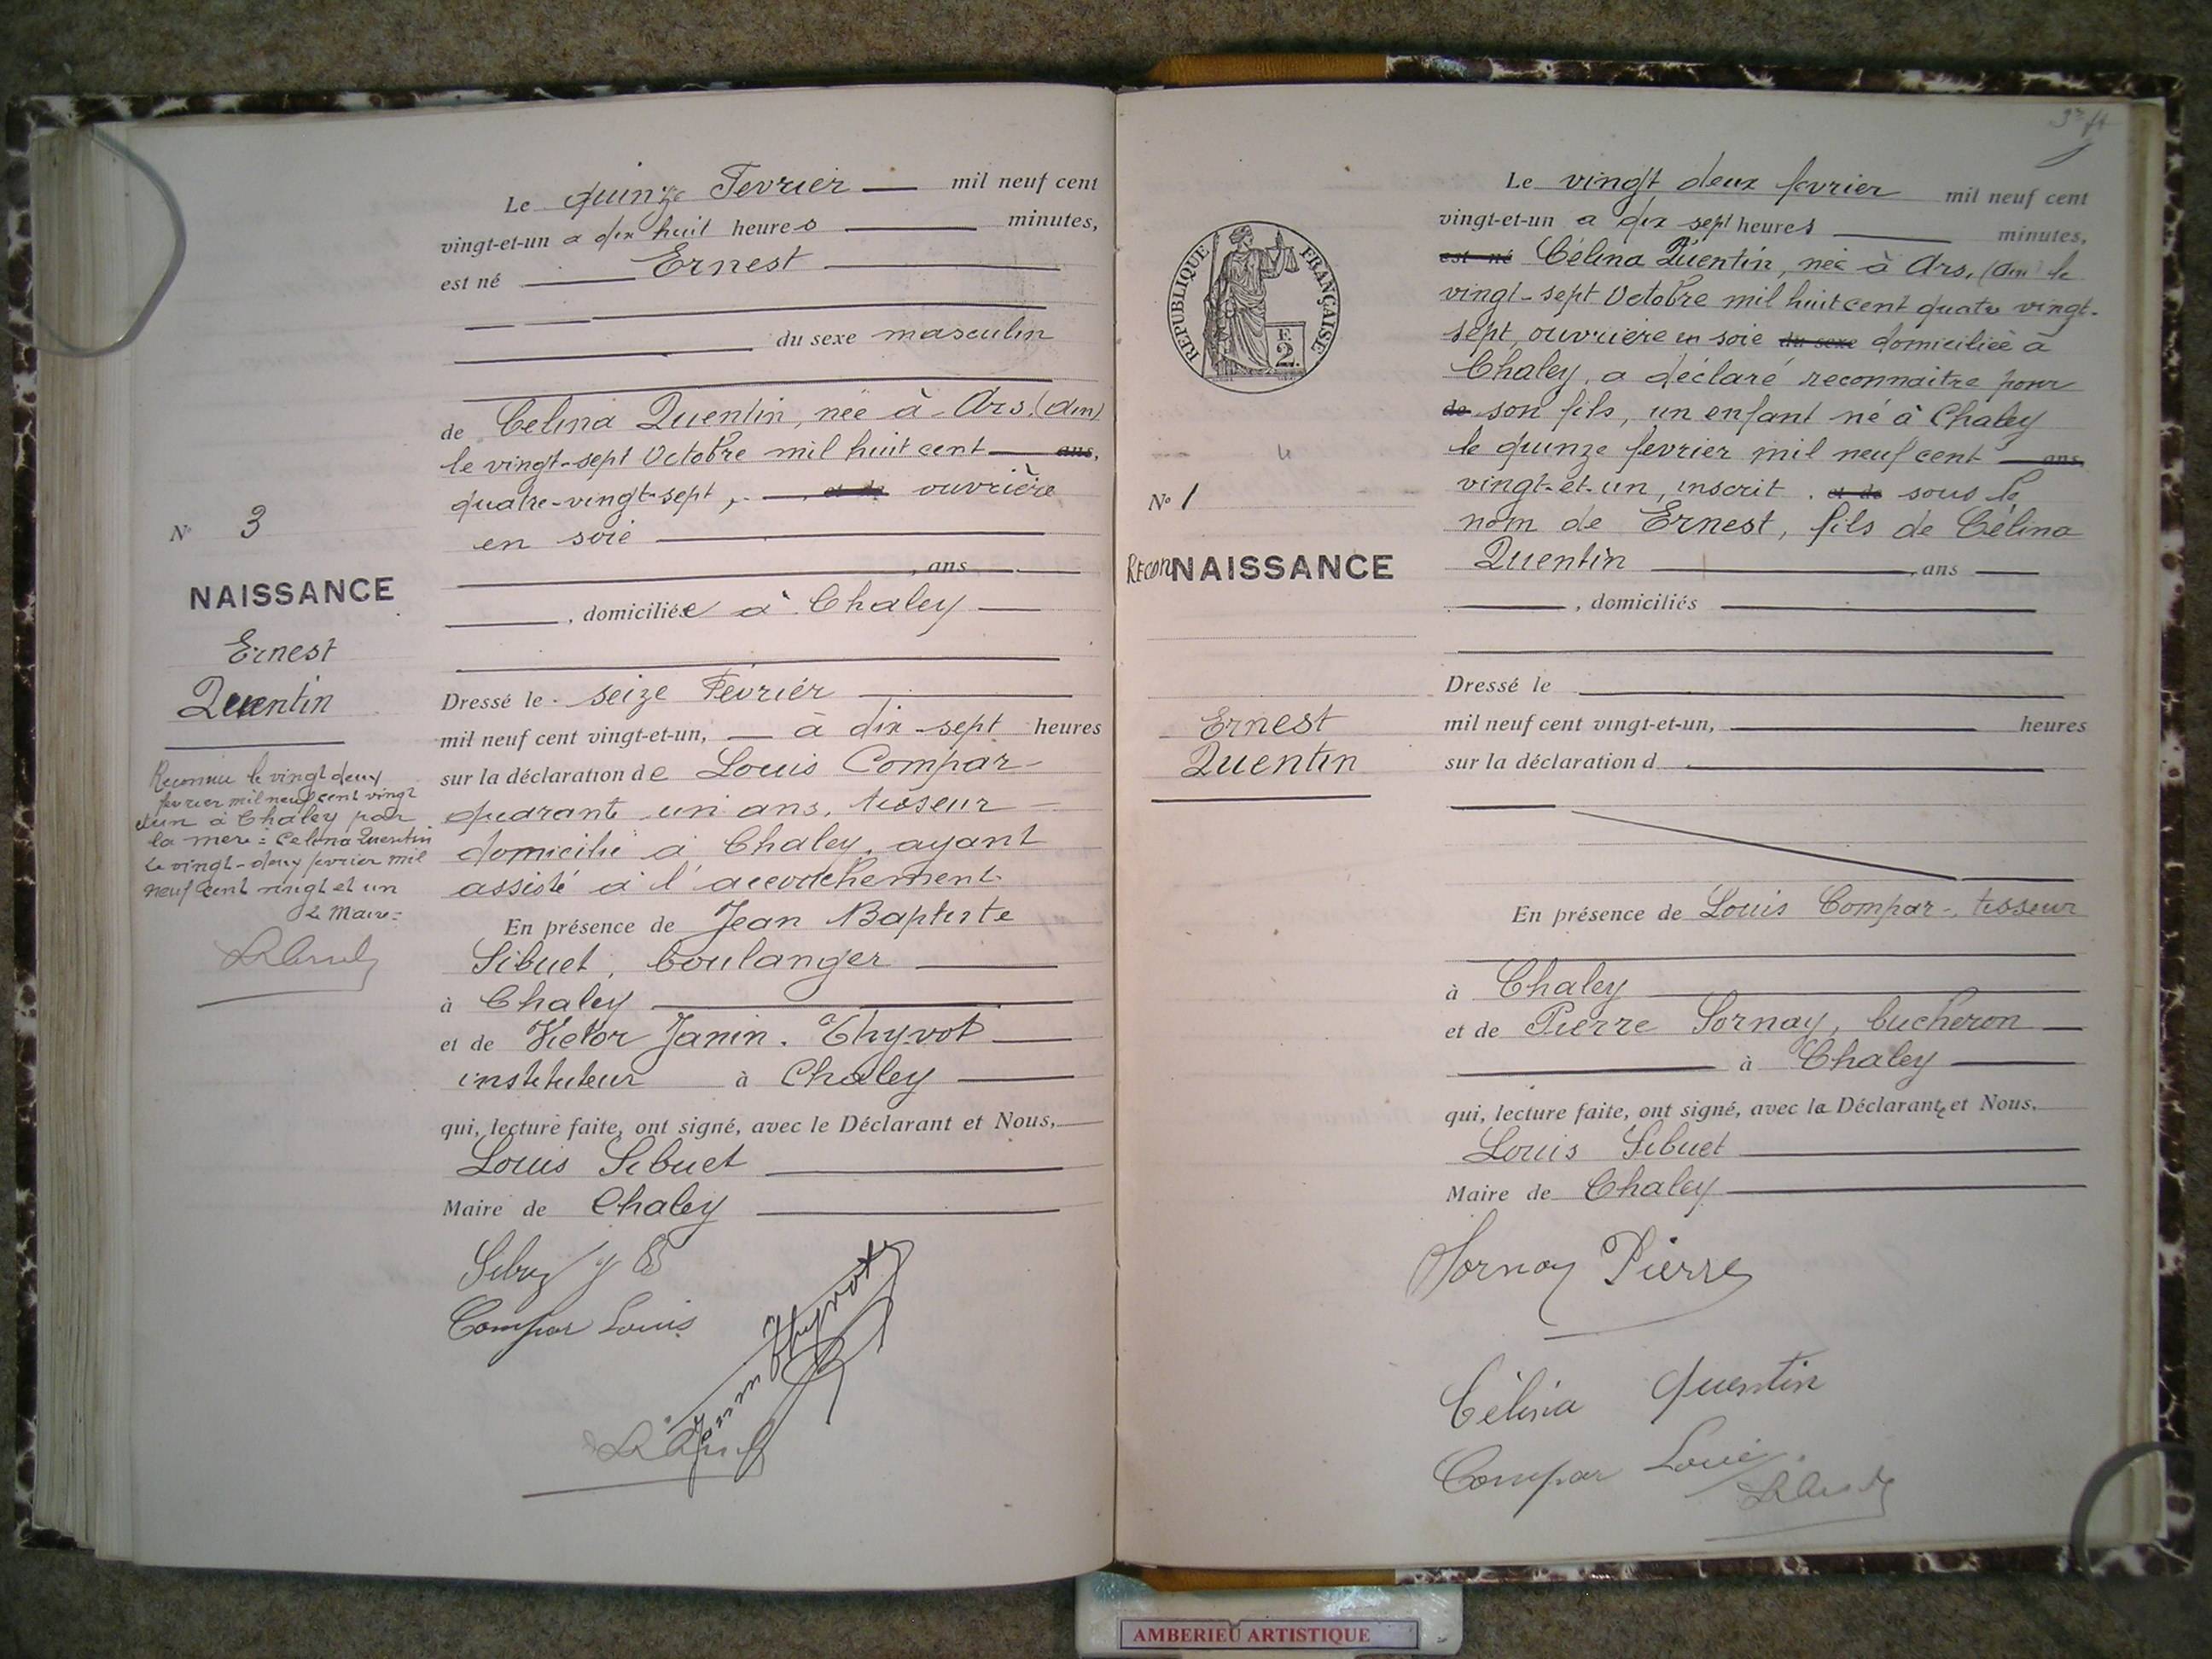 Le quinze Fevrier mil neuf cent
vingt-et-un a dix huit heures minutes,
est né Ernest
du sexe masculin
de Celina Quentin, née à Ars. (Ain)
le vingt-sept Octobre mil huit cent ans,
quatre-vingt-sept, et de ouvrière
en soie
, ans
, domiciliée à Chaley
Dressé le seize Février
mil neuf cent vingt-et-un, à dix-sept heures
sur la déclaration de Louis Compar
quarante un ans, tisseur
domicilié à Chaley, ayant
assisté à l'accouchement
En présence de Jean Baptiste
Sibuet, boulanger
à Chaley
et de Victor Janin. Thyvot
instituteur à Chaley
qui, lecture faite, ont signé, avec le Déclarant et Nous,
Louis Sibuet
Maire de Chaley
Compar Louis
Janin Thyvot
N° 3
NAISSANCE
Ernest
Quentin
Reconnu le vingt deux
fevrier mil neuf cent vingt
et un à Chaley par
la mère = Celina Quentin
Le vingt-deux fevrier mil
neuf cent vingt et un
Le Maire=
Le vingt deux fevrier mil neuf cent
vingt-et-un a dix sept heures minutes,
est né Célina Quentin, née à Ars, (Ain) le
vingt-sept Octobre mil huit cent quatre vingt-
sept, ouvriere en soie du sexe domiciliée à
Chaley, a déclaré reconnaitre pour
de son fils, un enfant né à Chaley
le quinze fevrier mil neuf cent ans
vingt-et-un, inscrit. et de sous le
nom de Ernest, fils de Célina
Quentin , ans
, domiciliés
Dressé le
mil neuf cent vingt-et-un, heures
sur la déclaration d
En présence de Louis Compar-, tisseur
à Chaley
et de Pierre Sornay, bucheron
à Chaley
qui, lecture faite, ont signé, avec la Déclarante et Nous,
Louis Sibuet
Maire de Chaley
Sornay Pierre
Célina Quentin
Compar Louis
RÉPUBLIQUE FRANÇAISE
F.
2.
N° 1
RECONNAISSANCE
Ernest
Quentin
AMBERIEU ARTISTIQUE